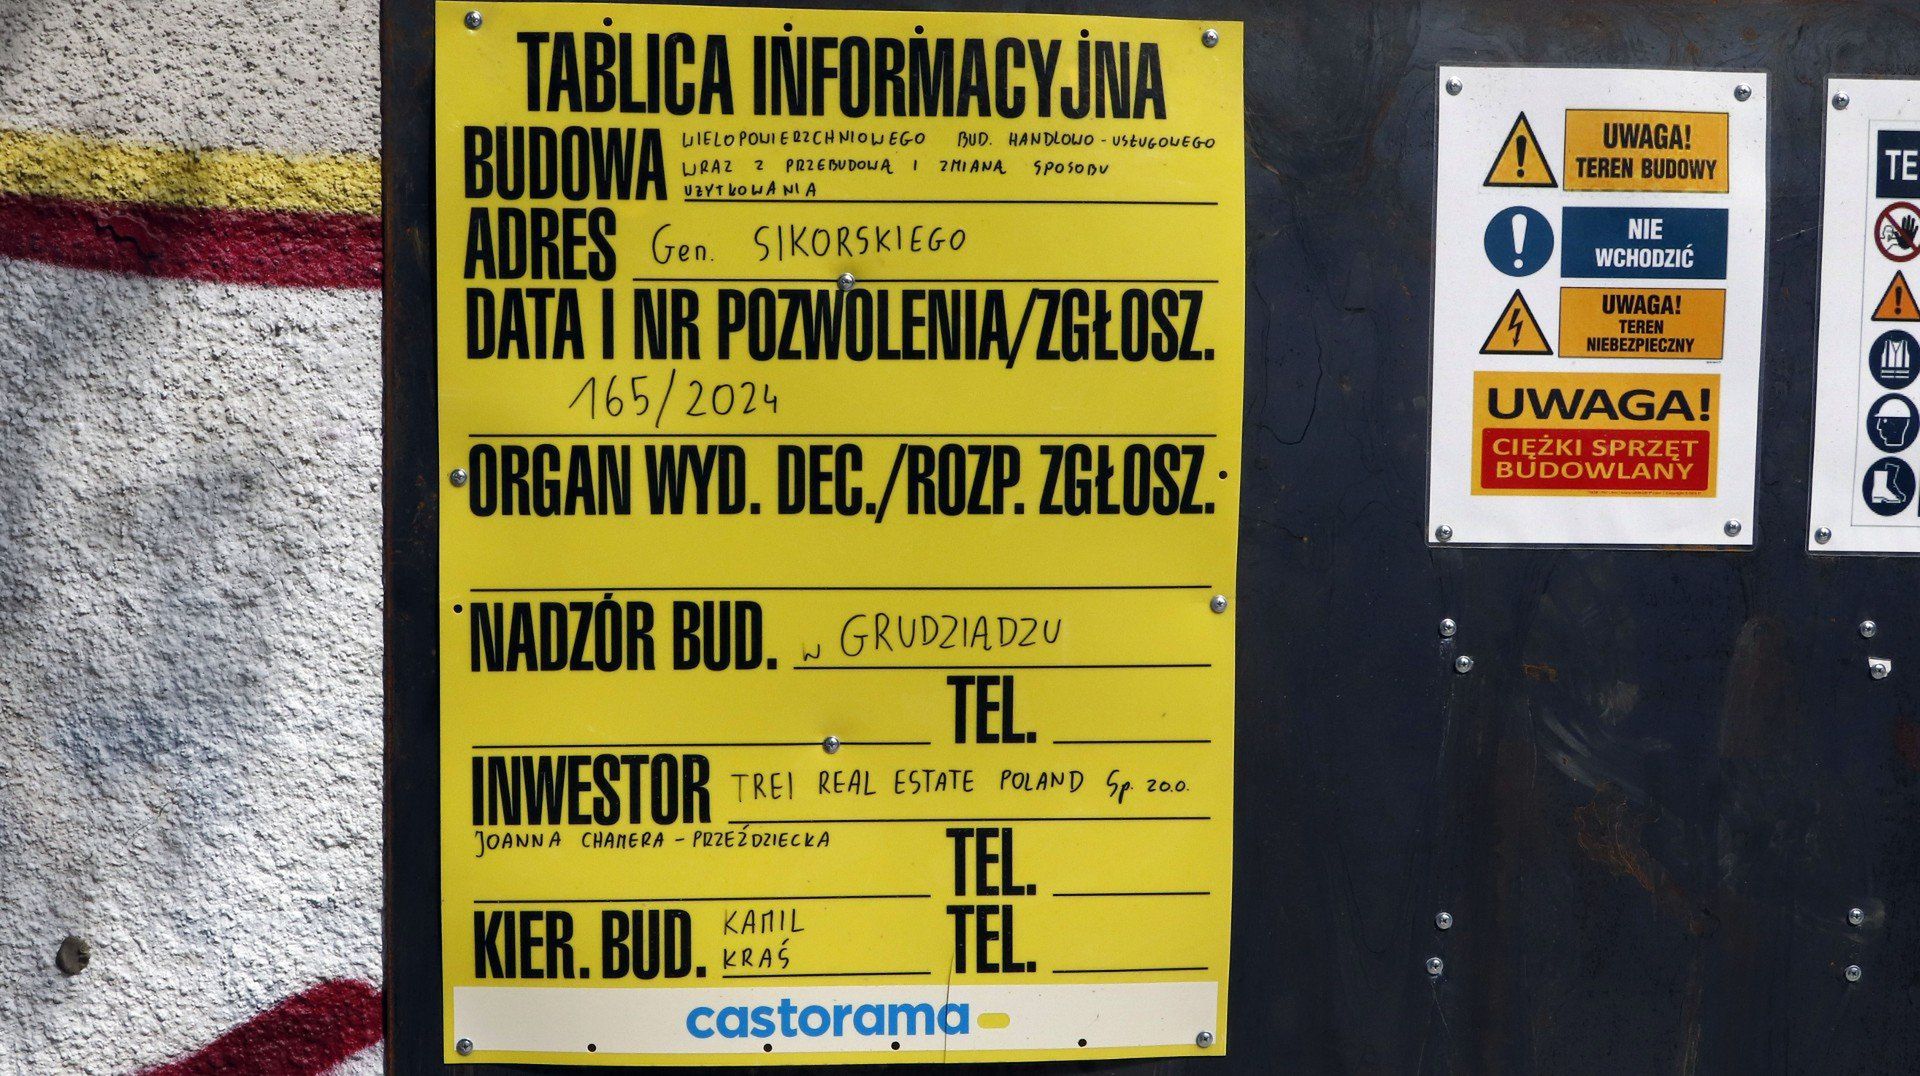 TABLICA INFORMACYJNA
BUDOWA WIELOPOWIERZCHNIOWEGO BUD. HANDLOWO-USŁUGOWEGO
WRAZ Z PRZEBUDOWĄ I ZMIANĄ SPOSOBU
UŻYTKOWANIA
ADRES Gen. SIKORSKIEGO
DATA I NR POZWOLENIA/ZGŁOSZ.
165/2024
ORGAN WYD. DEC./ROZP. ZGŁOSZ.
NADZÓR BUD. w GRUDZIĄDZU
TEL.
INWESTOR TREI REAL ESTATE POLAND Sp. zo.o.
JOANNA CHAMERA-PRZEŹDZIECKA TEL.
KIER. BUD. KAMIL
KRAŚ TEL.
castorama
UWAGA!
TEREN BUDOWY
NIE
WCHODZIĆ
UWAGA!
TEREN
NIEBEZPIECZNY
UWAGA!
CIĘŻKI SPRZĘT
BUDOWLANY
TE